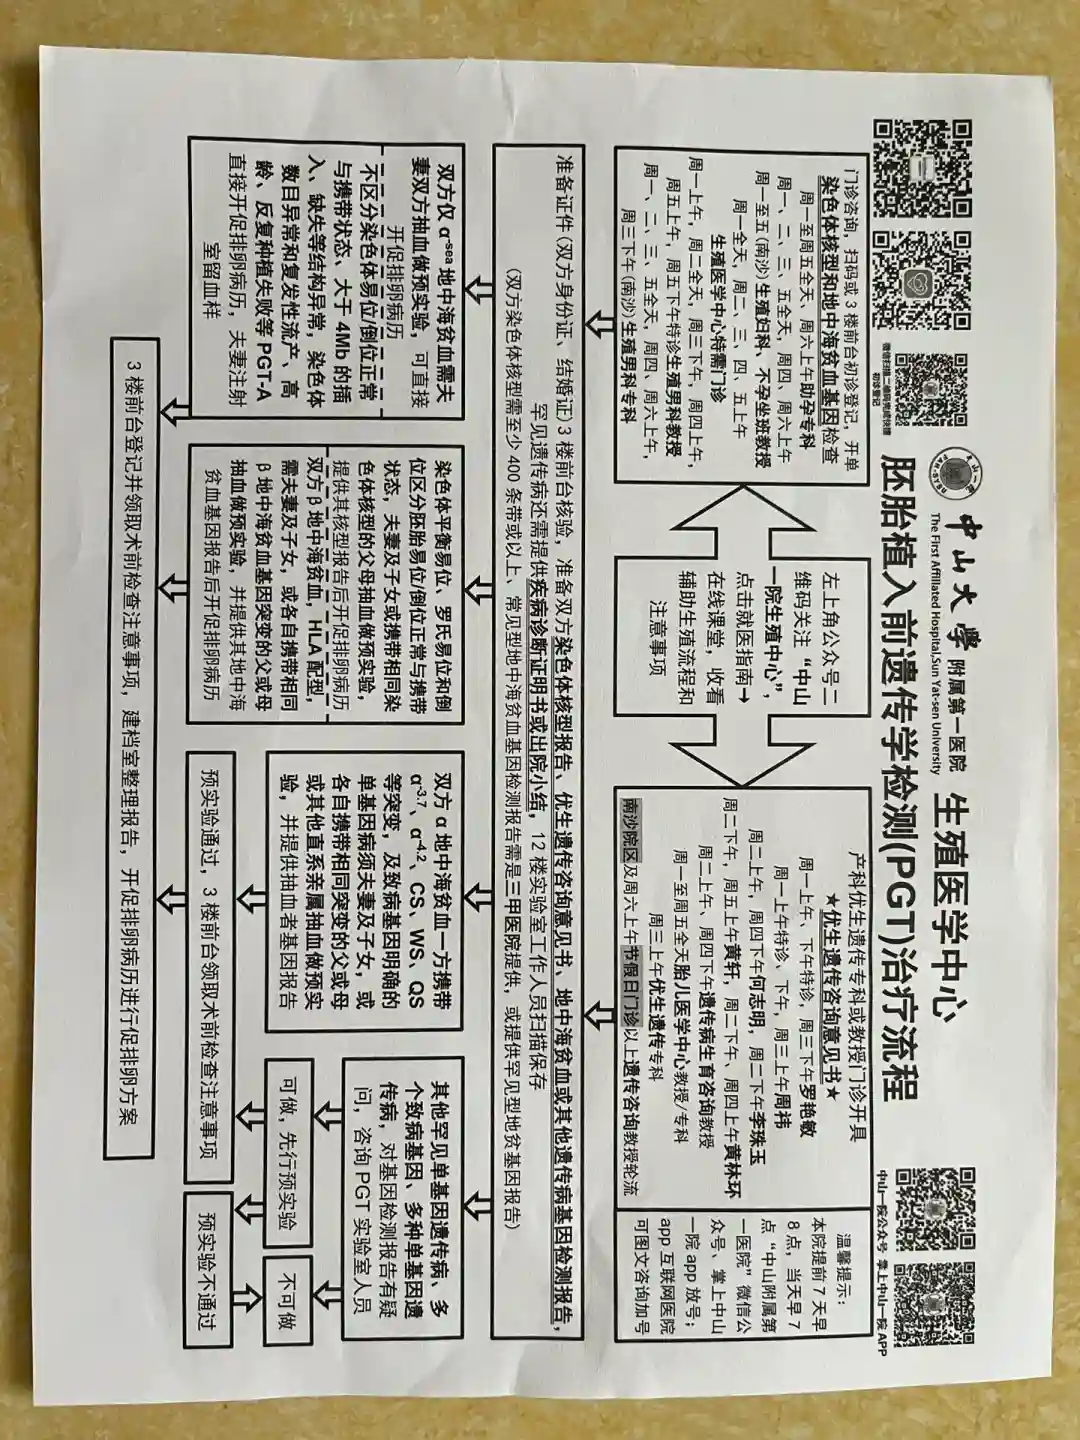 微信扫描二维码完成快捷
初诊登记
中山大学 附属第一医院 生殖医学中心
The First Affiliated Hospital,Sun Yat-sen University
胚胎植入前遗传学检测(PGT)治疗流程
中山一院公众号 掌上中山一院 APP
门诊咨询，扫码或3楼前台初诊登记，开单
染色体核型和地中海贫血基因检查
周一至周五全天、周六上午助孕专科
周一、二、三、五全天，周四、周六上午
周一至五(南沙)生殖妇科、不孕坐班教授
周一全天，周二、三、四、五上午
生殖医学中心特需门诊
周一上午，周二全天，周三下午，周四上午，
周五上午，周五下午特诊生殖男科教授
周一、二、三、五全天，周四、周六上午，
周三下午(南沙)生殖男科专科
左上角公众号二
维码关注“中山
一院生殖中心”，
点击就医指南→
在线课堂，收看
辅助生殖流程和
注意事项
产科优生遗传专科或教授门诊开具
★优生遗传咨询意见书★
周一上午、下午特诊，周三下午罗艳敏
周一上午特诊、下午，周三上午周祎
周二上午，周四下午何志明，周二下午李珠玉
周二下午，周五上午黄轩，周二下午、周四上午黄林环
周二上午、周四下午遗传病生育咨询教授
周一至周五全天胎儿医学中心教授/专科
周三上午优生遗传专科
南沙院区及周六上午节假日门诊以上遗传咨询教授轮流
温馨提示：
本院提前7天早
8点，当天早7
点“中山附属第
一医院”微信公
众号、掌上中山
一院app放号；
app互联网医院
可图文咨询加号
准备证件(双方身份证、结婚证)3楼前台核验，准备双方染色体核型报告、优生遗传咨询意见书、地中海贫血或其他遗传病基因检测报告，
罕见遗传病还需提供疾病诊断证明书或出院小结，12楼实验室工作人员扫描保存
(双方染色体核型需至少400条带或以上、常见型地中海贫血基因检测报告需是三甲医院提供，或提供罕见型地贫基因报告)
双方仅α-sea地中海贫血需夫
妻双方抽血做预实验，可直接
开促排卵病历
不区分染色体易位/倒位正常
与携带状态、大于4Mb的插
入、缺失等结构异常，染色体
数目异常和复发性流产、高
龄、反复种植失败等PGT-A
直接开促排卵病历，夫妻注射
室留血样
染色体平衡易位、罗氏易位和倒
位区分胚胎易位/倒位正常与携带
状态，夫妻及子女或携带相同染
色体核型的父母抽血做预实验，
提供其核型报告后开促排卵病历
双方β地中海贫血，HLA配型，
需夫妻及子女，或各自携带相同
β地中海贫血基因突变的父或母
抽血做预实验，并提供其地中海
贫血基因报告后开促排卵病历
双方α地中海贫血一方携带
α-3.7、α-4.2、CS、WS、QS
等突变，及致病基因明确的
单基因病须夫妻及子女，或
各自携带相同突变的父或母
或其他直系亲属抽血做预实
验，并提供抽血者基因报告
其他罕见单基因遗传病、多
个致病基因、多种单基因遗
传病，对基因检测报告有疑
问，咨询PGT实验室人员
可做，先行预实验
不可做
预实验通过，3楼前台领取术前检查注意事项
预实验不通过
3楼前台登记并领取术前检查注意事项，建档室整理报告，开促排卵病历进行促排卵方案